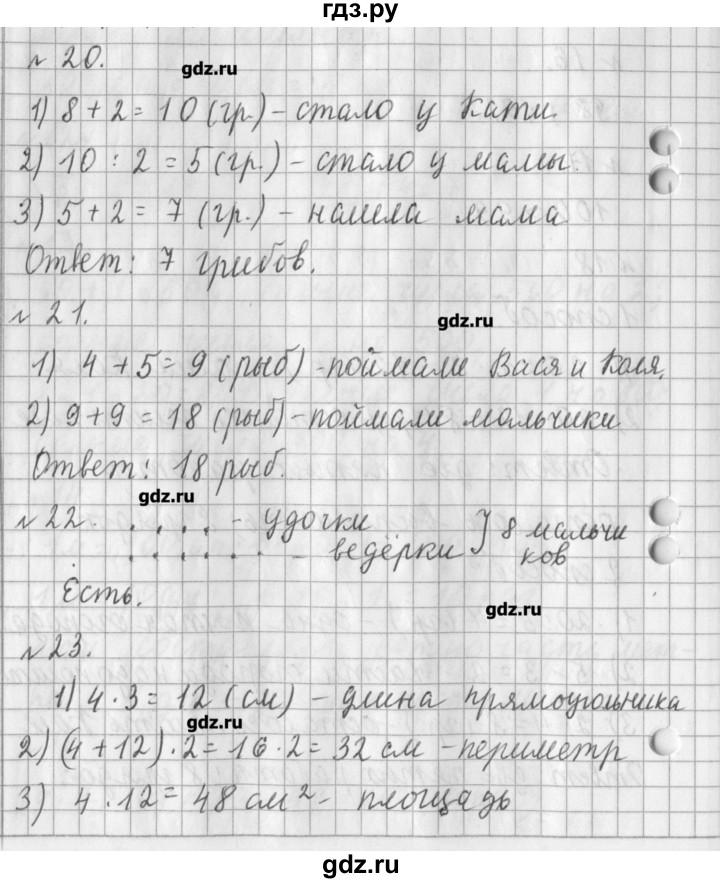 гдз.ру
№ 20.
gdz.ru
1) 8 + 2 = 10 (гр.) - стало у Кати.
2) 10 : 2 = 5 (гр.) - стало у мамы.
3) 5 + 2 = 7 (гр.) - нашла мама
Ответ: 7 грибов.
№ 21.
gdz.ru
1) 4 + 5 = 9 (рыб) - поймали Вася и Коля.
2) 9 + 9 = 18 (рыб) - поймали мальчики
Ответ: 18 рыб.
gdz.ru
№ 22. . . . . - удочки } 8 мальчи
. . . . . . - ведёрки ков
Есть.
gdz.ru
№ 23.
1) 4 · 3 = 12 (см) - длина прямоугольника
gdz.ru
2) (4 + 12) · 2 = 16 · 2 = 32 см - периметр
3) 4 · 12 = 48 см² - площадь
gdz.ru